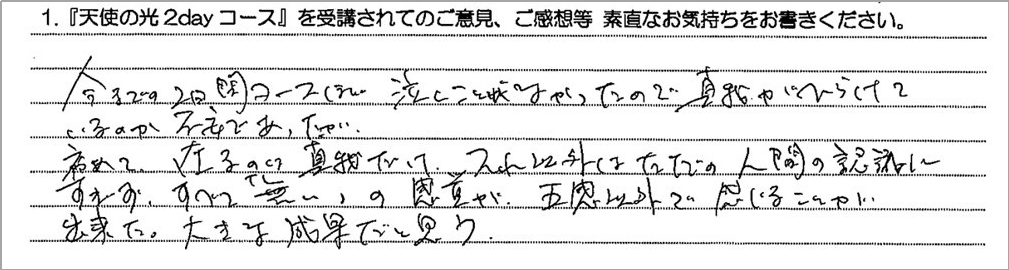 1.『天使の光2dayコース』を受講されてのご意見、ご感想等 素直なお気持ちをお書きください。
今までの2日間コースほど 泣くこと状なかったので 真我がひらけて
いるのか 不安であったが、
改めて、在るのは 真我だけ、それ以外はただの人間の認識に
すぎず、すべて無い、の感覚が、五感以外で感じることが
出来た。大きな成果だと思う。